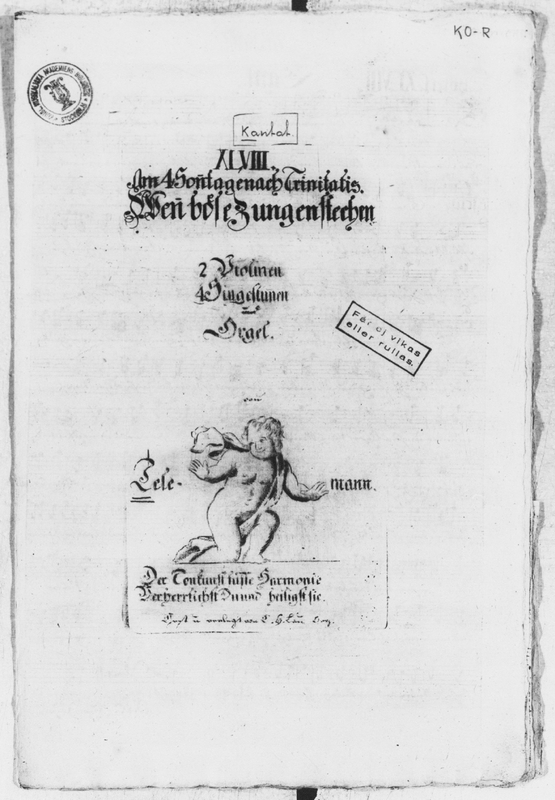 KO-R
Kantat.
XLVIII.
Am 4 Soñtage nach Trinitatis.
Weñ böse Zungen stechen
2 Violinen
4 Singestimen
Orgel.
Får ej vikas
eller rullas.
von
Tele-
mann.
Der Tonkunst süsse Harmonie
Verherrlichst Du und heiligst sie.